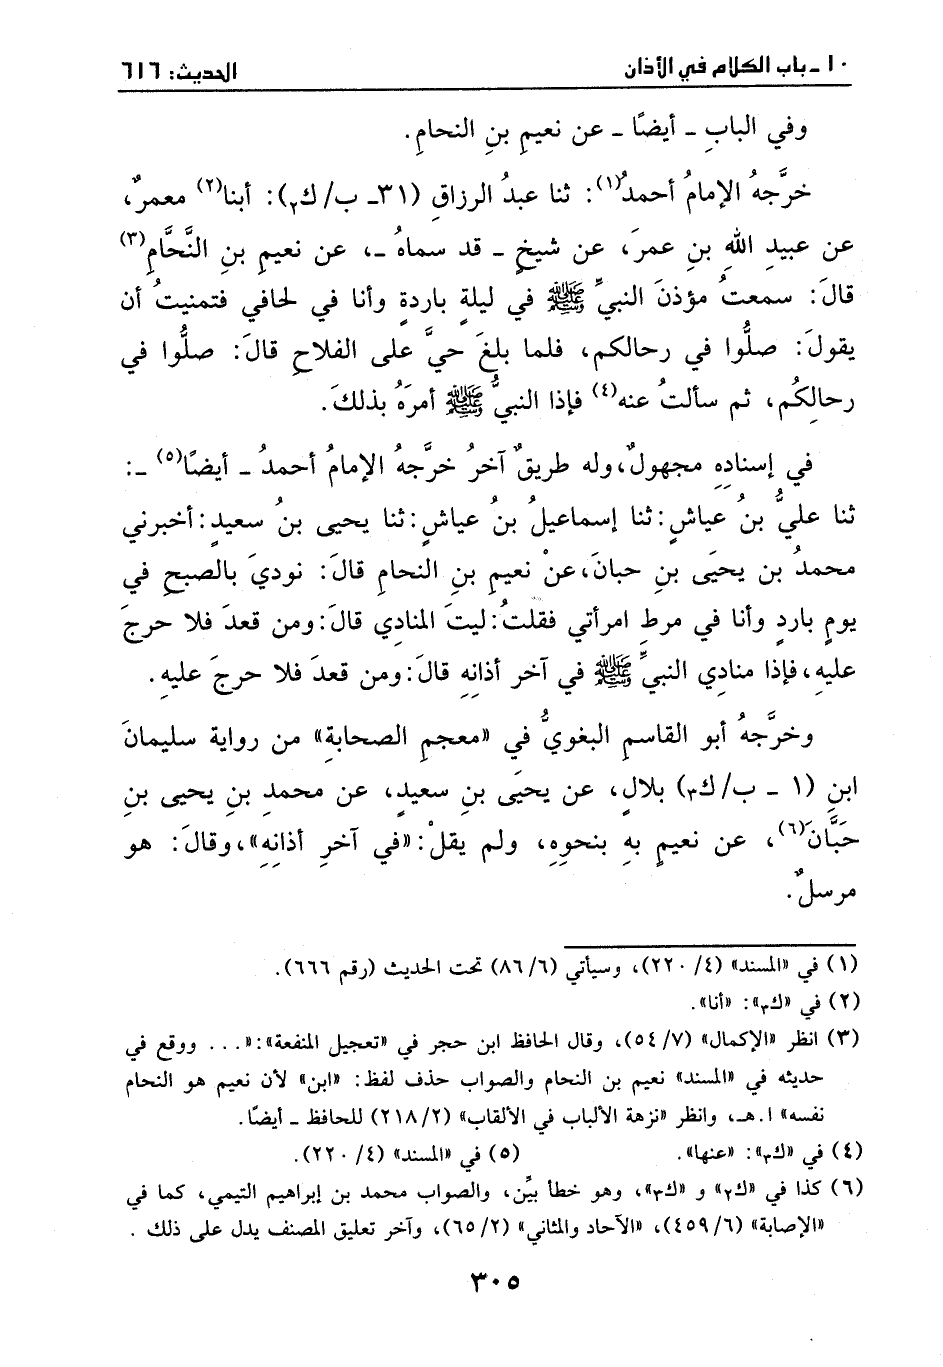 ١٠ـ باب الكلام في الأذان
الحديث: ٦١٦
وفي البابِ ـ أيضًا ـ عن نعيمِ بنِ النحامِ.
خرَّجهُ الإمامُ أحمدُ(١): ثنا عبدُ الرزاقِ (٣١ـ ب/ك٢): أبنا(٢) معمرٌ،
عن عبيدِ اللهِ بنِ عمرَ، عن شيخٍ ـ قد سماهُ ـ، عن نعيمِ بنِ النَّحَّامِ(٣)
قالَ: سمعتُ مؤذنَ النبيِّ ﷺ في ليلةٍ باردةٍ وأنا في لحافي فتمنيتُ أن
يقولَ: صلُّوا في رحالكم، فلما بلغَ حيَّ على الفلاحِ قالَ: صلُّوا في
رحالِكُم، ثم سألتُ عنه(٤) فإذا النبيُّ ﷺ أمرَهُ بذلكَ.
في إسنادِهِ مجهولٌ، وله طريقٌ آخرُ خرَّجهُ الإمامُ أحمدُ ـ أيضًا(٥) ـ:
ثنا عليُّ بنُ عياشٍ: ثنا إسماعيلُ بنُ عياشٍ: ثنا يحيى بنُ سعيدٍ: أخبرني
محمدُ بن يحيَى بنِ حبانَ، عنْ نعيمِ بنِ النحامِ قالَ: نوديَ بالصبحِ في
يومٍ باردٍ وأنا في مرطِ امرأتي فقلتُ: ليتَ المنادِي قالَ: ومن قعدَ فلا حرجَ
عليهِ، فإذا منادِي النبيِّ ﷺ في آخر أذانِهِ قالَ: ومن قعدَ فلا حرجَ عليهِ.
وخرَّجهُ أبو القاسمِ البغويُّ في «معجمِ الصحابةِ» من رواية سليمانَ
ابنِ (١ ـ ب/ك٣) بلالٍ، عن يحيَى بنِ سعيدٍ، عن محمدِ بنِ يحيى بنِ
حَبَّانَ(٦)، عن نعيمٍ بهِ بنحوِهِ، ولم يقلْ: «في آخرِ أذانِهِ»، وقالَ: هو
مرسلٌ.
(١) في «المسند» (٤/ ٢٢٠)، وسيأتي (٦/ ٨٦) تحت الحديث (رقم ٦٦٦).
(٢) في «ك٣»: «أنا».
(٣) انظر «الإكمال» (٧/ ٥٤)، وقال الحافظ ابن حجر في «تعجيل المنفعة»: «... ووقع في
حديثه في «المسند» نعيم بن النحام والصواب حذف لفظ: «ابن» لأن نعيم هو النحام
نفسه» ا.هـ، وانظر «نزهة الألباب في الألقاب» (٢/ ٢١٨) للحافظ ـ أيضًا.
(٤) في «ك٣»: «عنها». (٥) في «المسند» (٤/ ٢٢٠).
(٦) كذا في «ك٢» و «ك٣»، وهو خطأ بيِّن، والصواب محمد بن إبراهيم التيمي، كما في
«الإصابة» (٦/ ٤٥٩)، «الآحاد والمثاني» (٢/ ٦٥)، وآخر تعليق المصنف يدل على ذلك .
٣٠٥